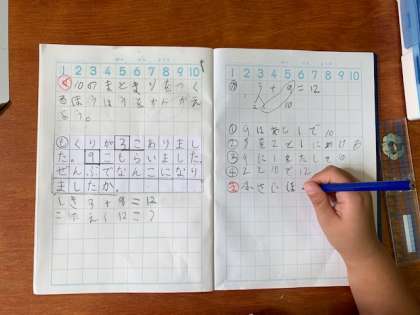 1 2 3 4 5 6 7 8 9 10
め 10のまとまりをつく
るほうほうをかんがえ
よう。
も くりが3こありまし
た。9こもらいました。
ぜんぶでなんこになり
ましたか。
しき 3+9=12
こたえ(12こ)
1 2 3 4 5 6 7 8 9 10
3+9=12
2 10
① 9はあと1で10
② 3を2と1にわける
③ 9に1をたして10
④ 2と10で12